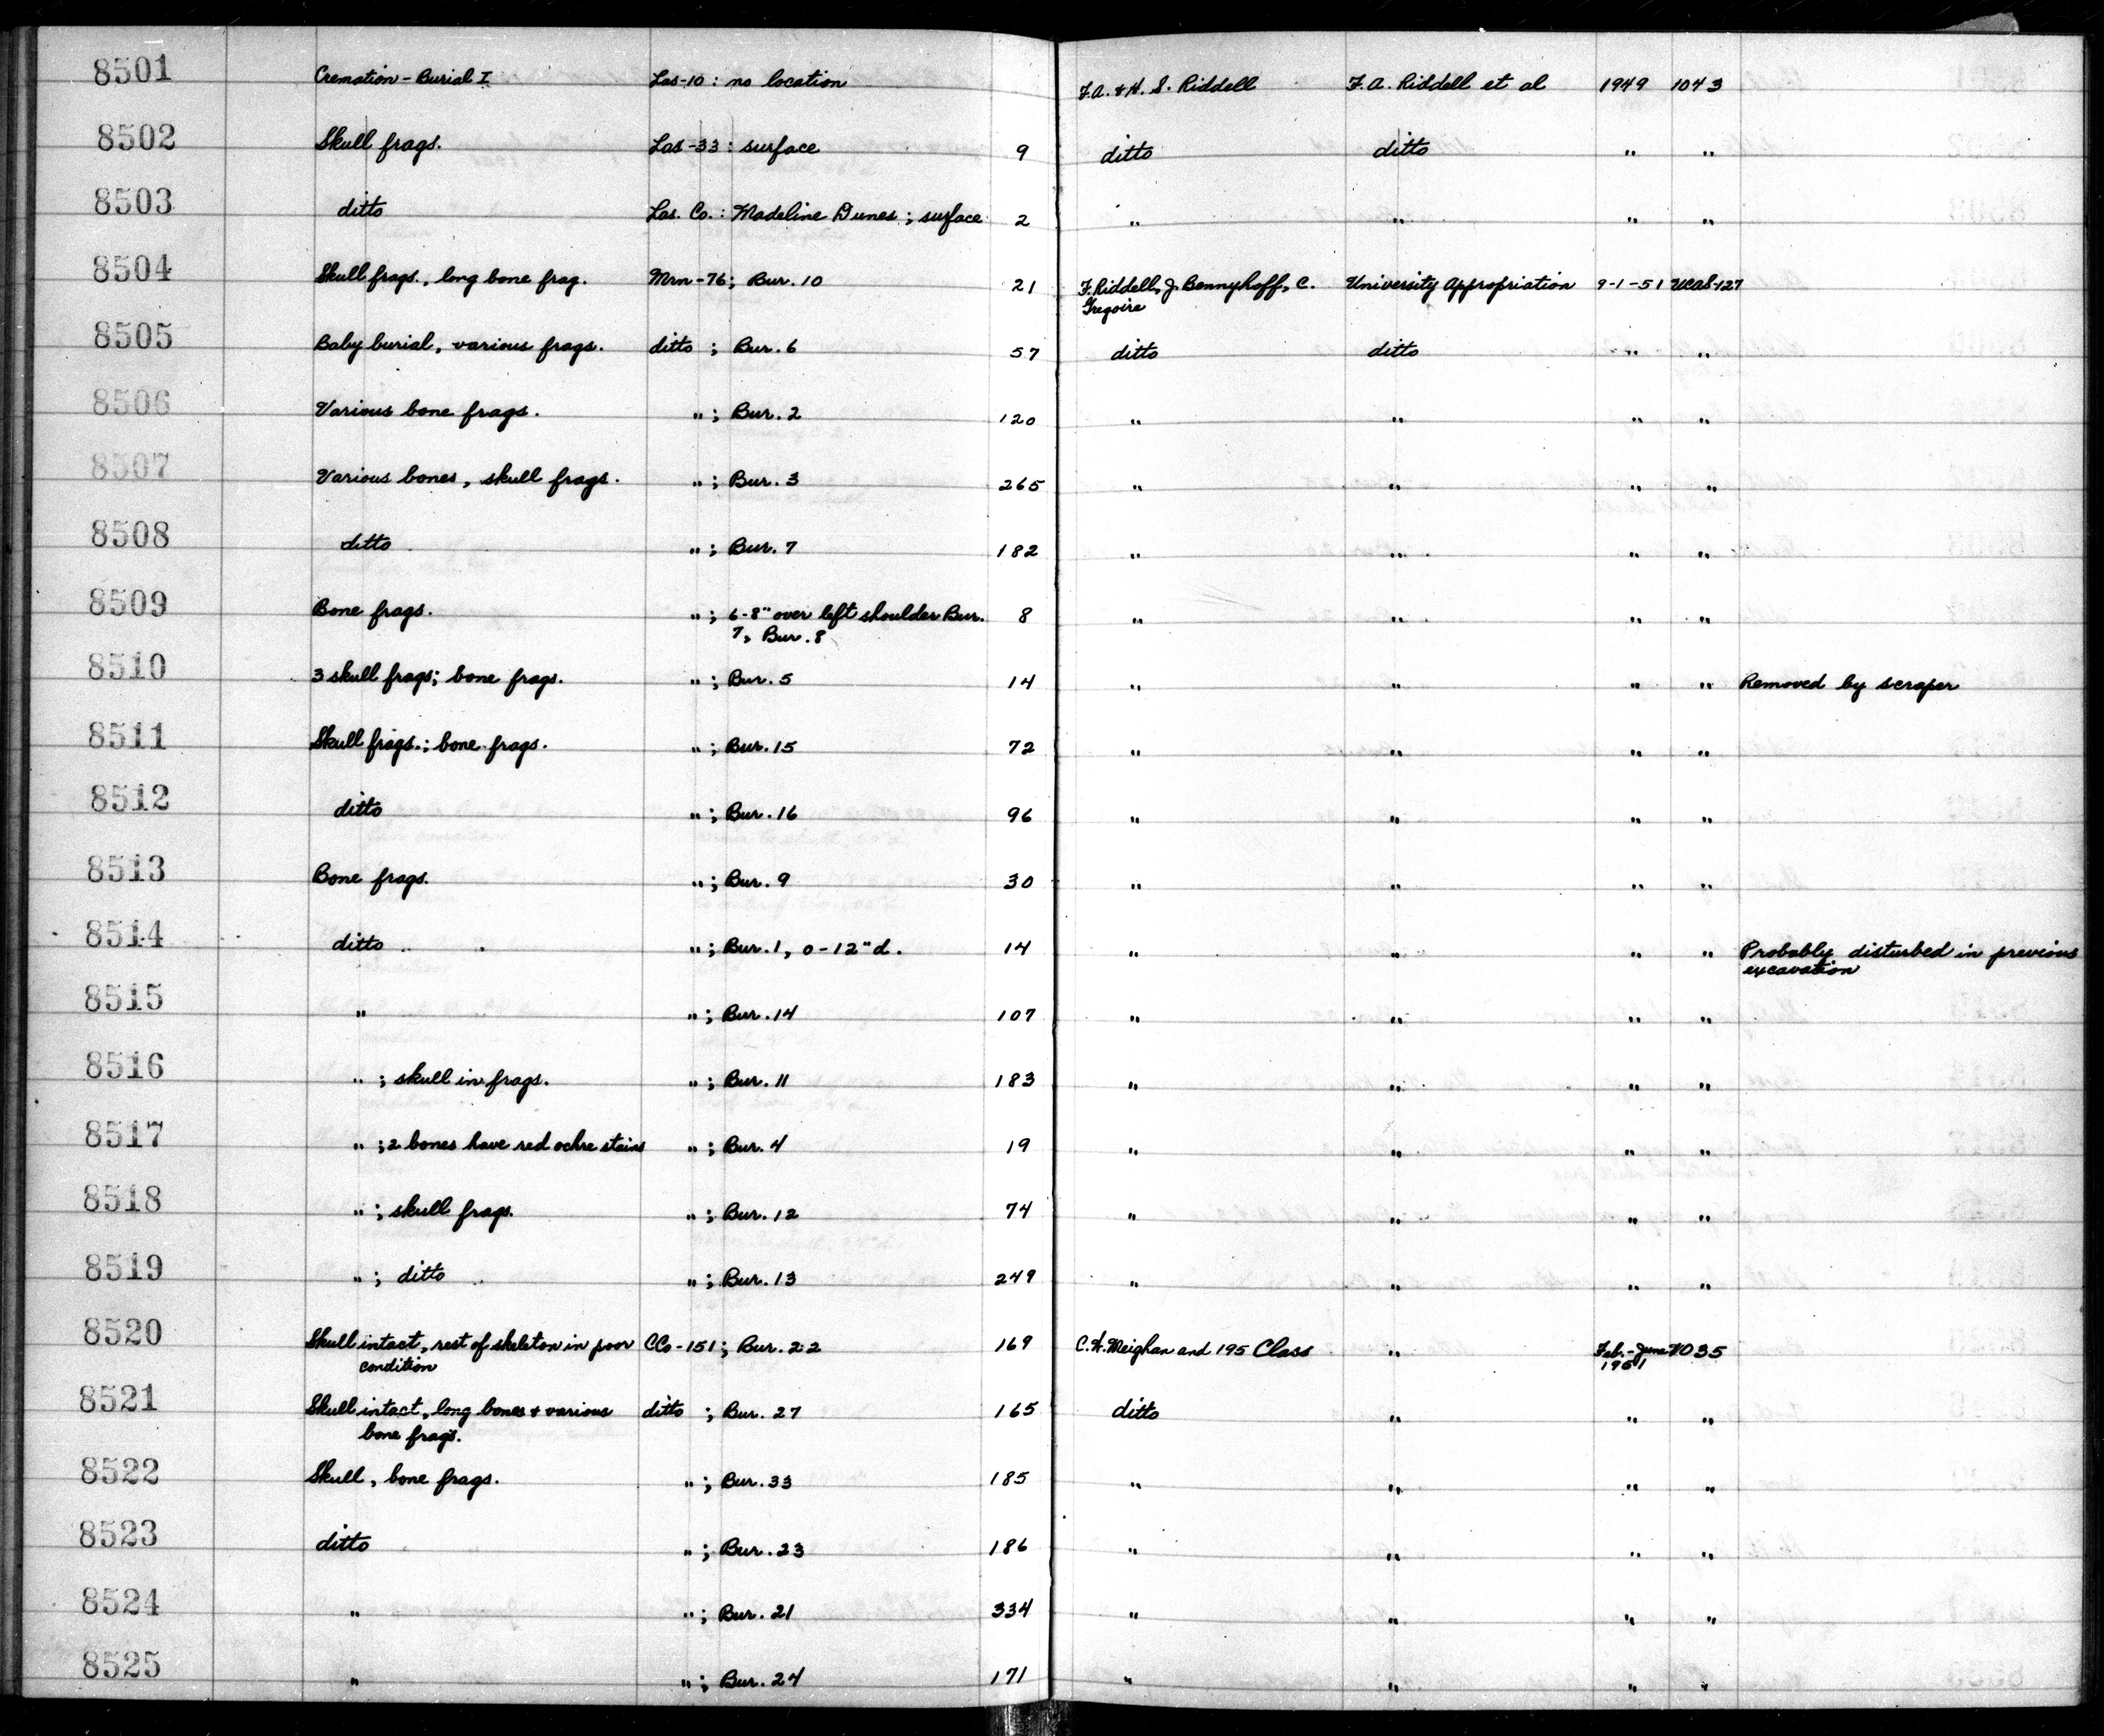 8501 Cremation - Burial I Las-10 : no location F.A. & H. S. Riddell F.A. Riddell et al 1949 1043
8502 Skull frags. Las-33 : surface 9 ditto ditto " "
8503 ditto Las. Co. : Madeline Dunes ; surface 2 " " " "
8504 Skull frags., long bone frag. Mrn-76; Bur. 10 21 F. Riddell, J. Bennyhoff, C. University Appropriation 9-1-51 UCAS-127
Gregoire
8505 Baby burial, various frags. ditto ; Bur. 6 57 ditto ditto " "
8506 Various bone frags. " ; Bur. 2 120 " " " "
8507 Various bones, skull frags. " ; Bur. 3 265 " " " "
8508 ditto " ; Bur. 7 182 " " " "
8509 Bone frags. " ; 6-8" over left shoulder Bur. 8 " " " "
7, Bur. 8
8510 3 skull frags; bone frags. " ; Bur. 5 14 " " " " Removed by scraper
8511 Skull frags.; bone frags. " ; Bur. 15 72 " " " "
8512 ditto " ; Bur. 16 96 " " " "
8513 Bone frags. " ; Bur. 9 30 " " " "
8514 ditto " ; Bur. 1, 0-12" d. 14 " " " " Probably disturbed in previous
excavation
8515 " " ; Bur. 14 107 " " " "
8516 " ; skull in frags. " ; Bur. 11 183 " " " "
8517 " ; 2 bones have red ochre stains " ; Bur. 4 19 " " " "
8518 " ; skull frags. " ; Bur. 12 74 " " " "
8519 " ; ditto " ; Bur. 13 249 " " " "
8520 Skull intact, rest of skeleton in poor CCo-151; Bur. 22 169 C.W. Meighan and 195 Class " Feb.-June 1035
condition 1951
8521 Skull intact, long bones & various ditto ; Bur. 27 165 ditto " " "
bone frags.
8522 Skull, bone frags. " ; Bur. 33 185 " " " "
8523 ditto " ; Bur. 23 186 " " " "
8524 " " ; Bur. 21 334 " " " "
8525 " " ; Bur. 24 171 " " " "